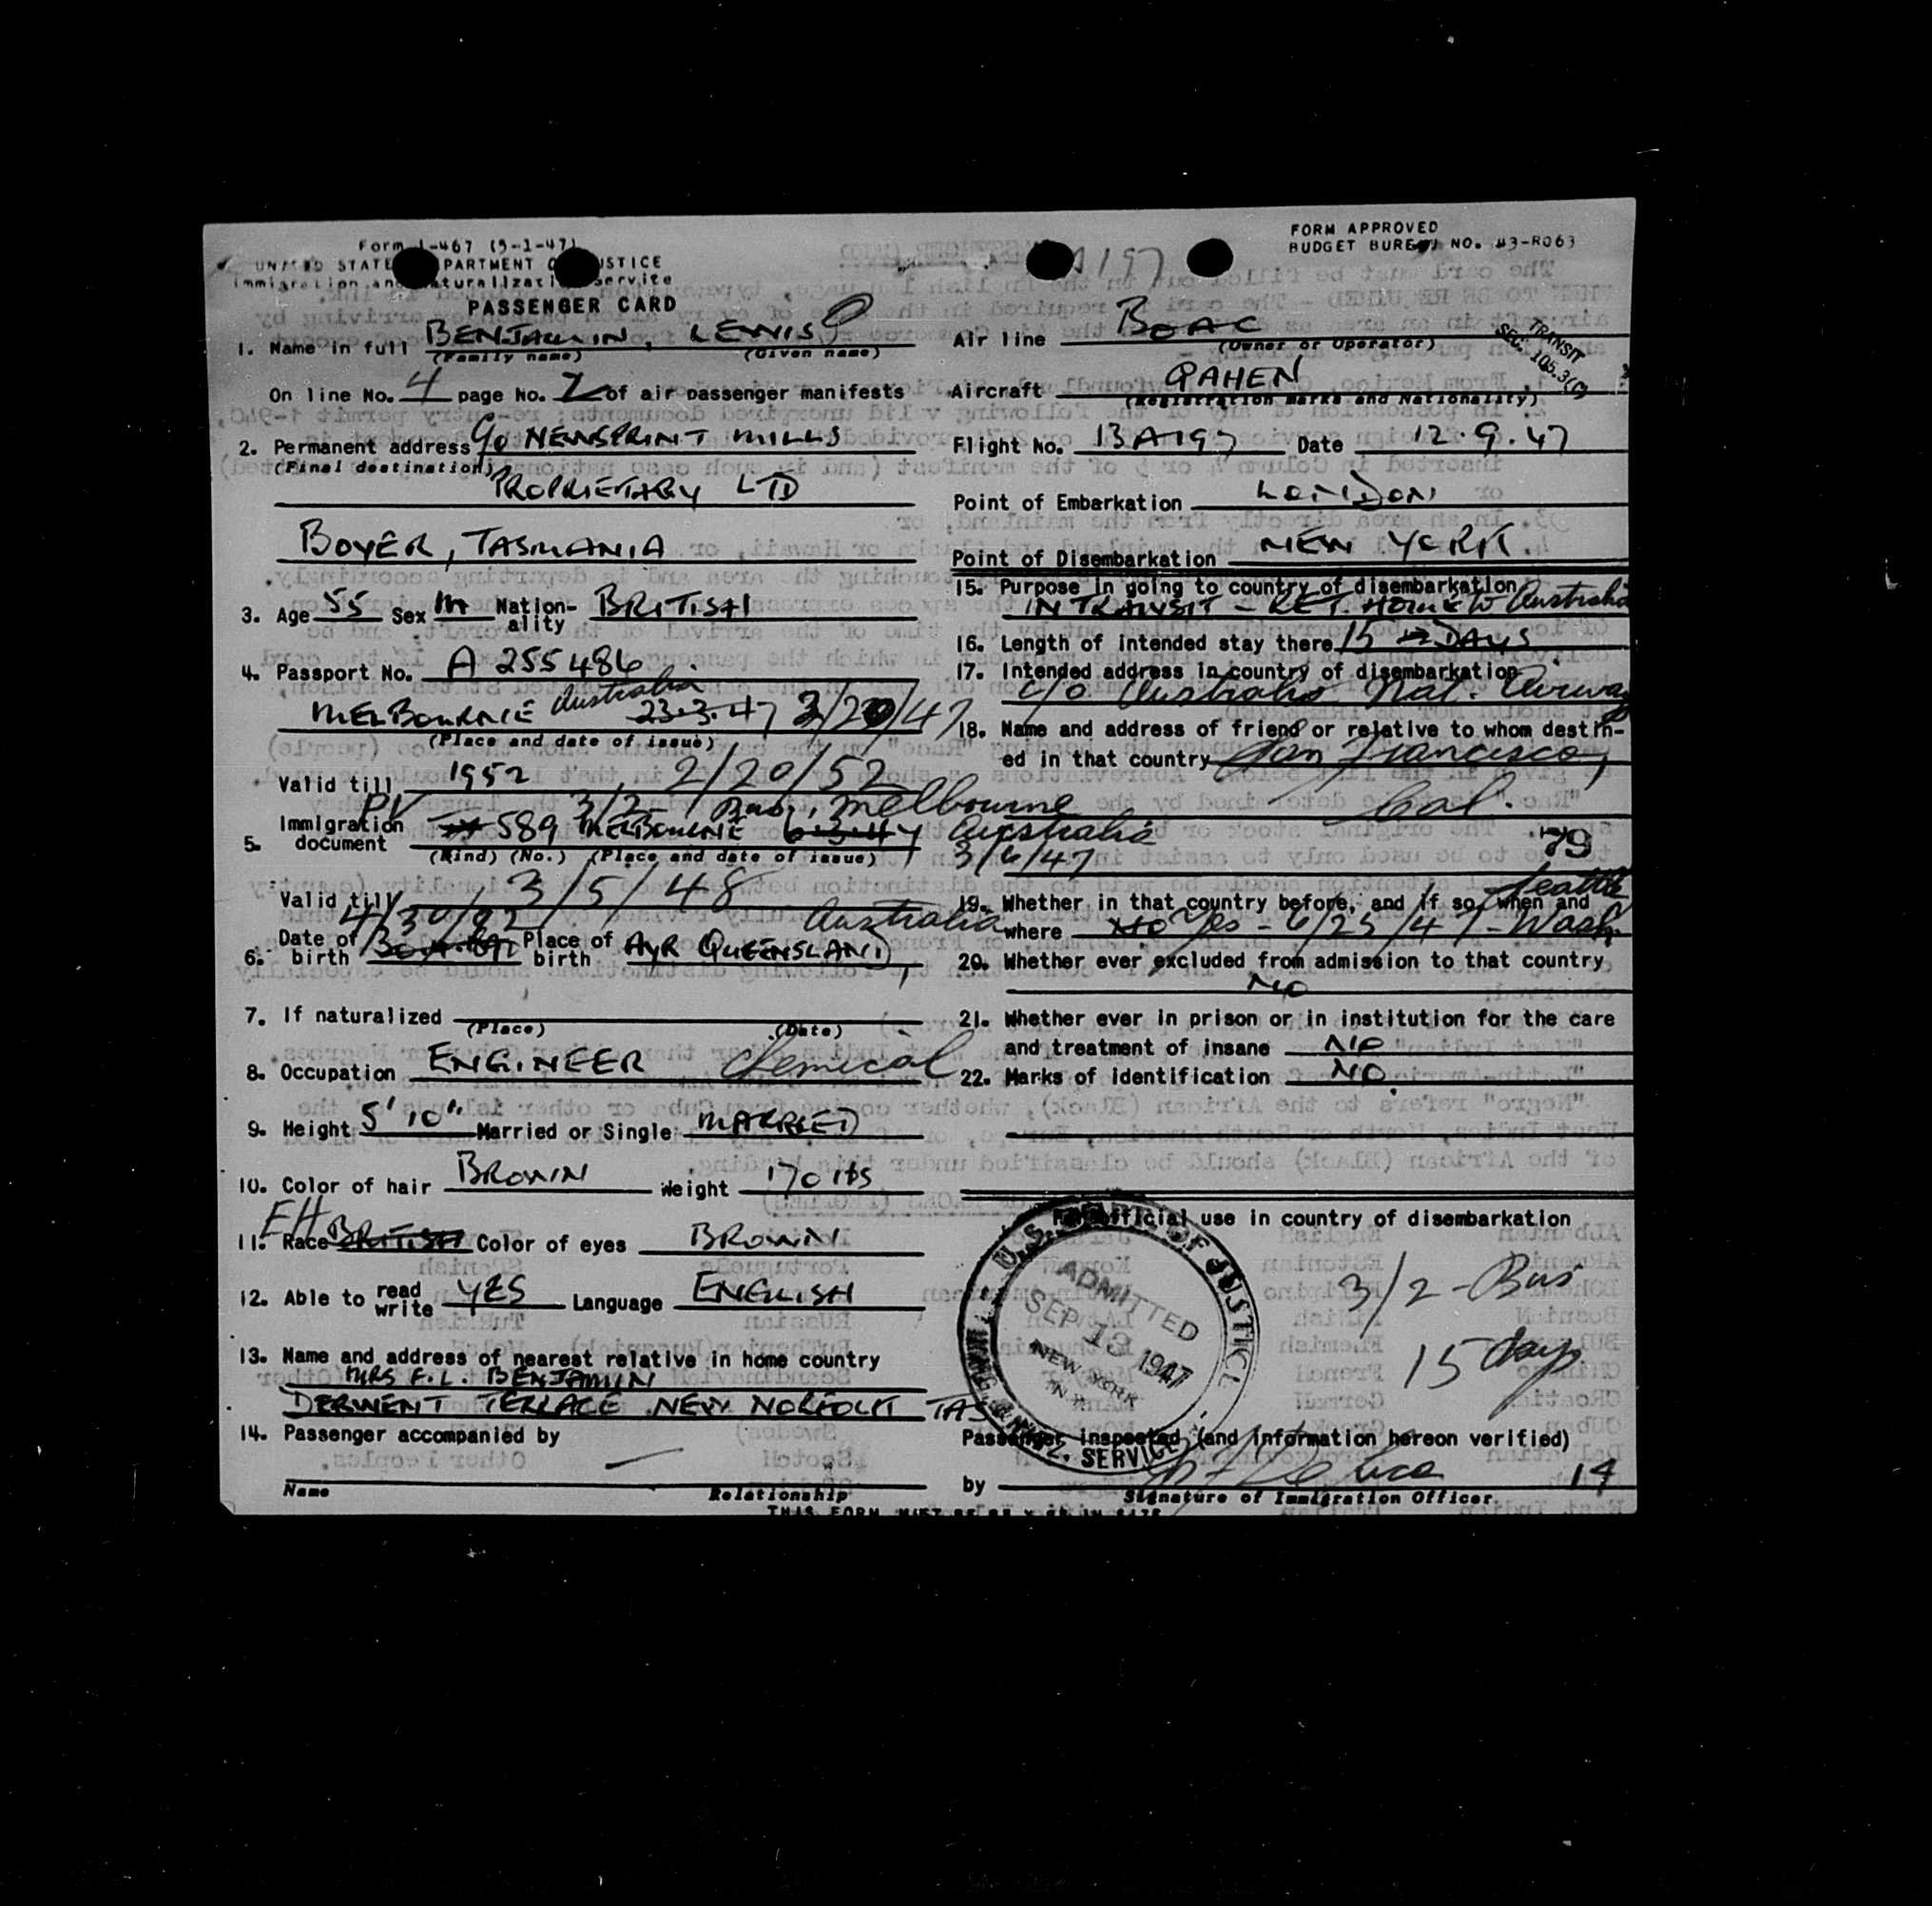 Form I-467 (5-1-47)
UNITED STATES DEPARTMENT OF JUSTICE
Immigration and Naturalization Service
PASSENGER CARD
FORM APPROVED
BUDGET BUREAU NO. 43-R063
A197
1. Name in full BENJAMIN, LEWIS
(Family name) (Given name)
On line No. 4 page No. 2 of air passenger manifests
2. Permanent address c/o NEWSPRINT MILLS
(Final destination)
PROPRIETARY LTD
BOYER, TASMANIA
3. Age 55 Sex M Nationality BRITISH
4. Passport No. A 255486
MELBOURNE Australia 23.3.47 2/20/47
(Place and date of issue)
Valid till 1952 2/20/52
PV 3/2- Bus, Melbourne
5. Immigration document 589 MELBOURNE 6.3.47 Australia
(Kind) (No.) (Place and date of issue) 3/6/47
Valid till 3/5/48
4/30/92 Australia
6. Date of birth Place of birth AYR QUEENSLAND,
7. If naturalized
(Place) (Date)
8. Occupation ENGINEER Chemical
9. Height 5' 10" Married or Single MARRIED
10. Color of hair BROWN Weight 170 lbs
EH
11. Race BRITISH Color of eyes BROWN
12. Able to read write YES Language ENGLISH
13. Name and address of nearest relative in home country
MRS F.L. BENJAMIN
DERWENT TERRACE NEW NORFOLK TAS
14. Passenger accompanied by —
Name Relationship
Air line BOAC
(Owner or Operator)
TRANSIT
SEC. 105.3(C)
Aircraft GAHEN
(Registration marks and Nationality)
Flight No. BA197 Date 12.9.47
Point of Embarkation LONDON
Point of Disembarkation NEW YORK
15. Purpose in going to country of disembarkation
IN TRANSIT - RET. HOME to Australia
16. Length of intended stay there 15 DAYS
17. Intended address in country of disembarkation
c/o Australia Nat. Airways
18. Name and address of friend or relative to whom destined in that country San Francisco,
Cal.
79
19. Whether in that country before, and if so, when and Seattle
where NO Yes - 6/25/47 - Wash
20. Whether ever excluded from admission to that country
NO
21. Whether ever in prison or in institution for the care
and treatment of insane NO
22. Marks of identification NO
For official use in country of disembarkation
U.S. DEPT. OF JUSTICE
ADMITTED
SEP 13 1947
NEW YORK
N.Y.
SERVICE
3/2 - Bus
15 days
Passenger inspected (and information hereon verified)
by
Signature of Immigration Officer